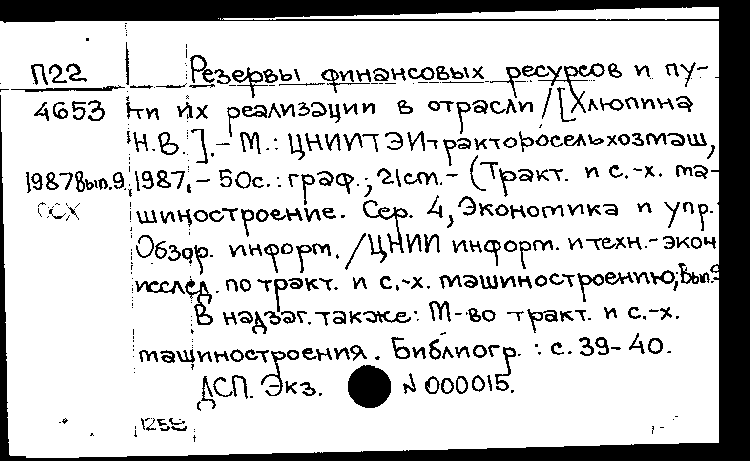 П22 Резервы финансовых ресурсов и пу-
4653 ти их реализации в отрасли /[Хлюпина
Н.В.].- М.: ЦНИИТЭИтракторосельхозмаш,
1987 Вып.9 1987.- 50с.: граф.; 21см.- (Тракт. и с.-х. ма-
ОСХ шиностроение. Сер. 4, Экономика и упр.
Обзор. информ. /ЦНИИ информ. и техн.-экон
исслед. по тракт. и с.-х. машиностроению; Вып.9
В надзаг. также: М-во тракт. и с.-х.
машиностроения. Библиогр.: с. 39-40.
ДСП. Экз. N 000015.